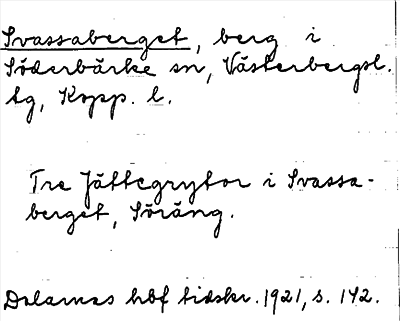 Svassaberget, berg i
Söderbärke sn, Västerbergsl.
tg, Kopp. l.
Tre Jättegrytor i Svassa-
berget, Söräng.
Dalarnas hbf tidskr. 1921, s. 142.